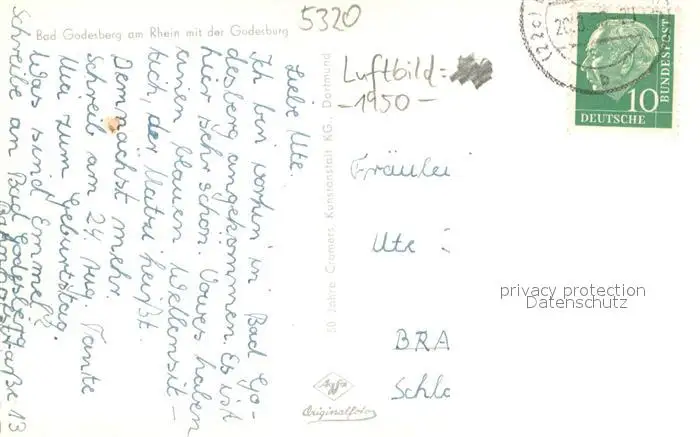 5320
Bad Godesberg am Rhein mit der Godesburg
Luftbild:
-1950-
DEUTSCHE
BUNDESPOST
10
Liebe Ute.
Ich bin vorhin in Bad Go-
desberg angekommen. Es ist
hier sehr schön. Vowes haben
einen blauen Wellensit-
tich, der Matzi heißt.
Demnächst mehr.
Schreib am 24. Aug. Tante
Mia zum Geburtstag.
Was sind Emmel?
Schreibe an Bad Godesberg
Bahnhofstraße 13
50 Jahre Cramers Kunstanstalt KG., Dortmund
Fräulei
Ute
BRA
Schlo
privacy protection
Datenschutz
Agfa
Originalfoto